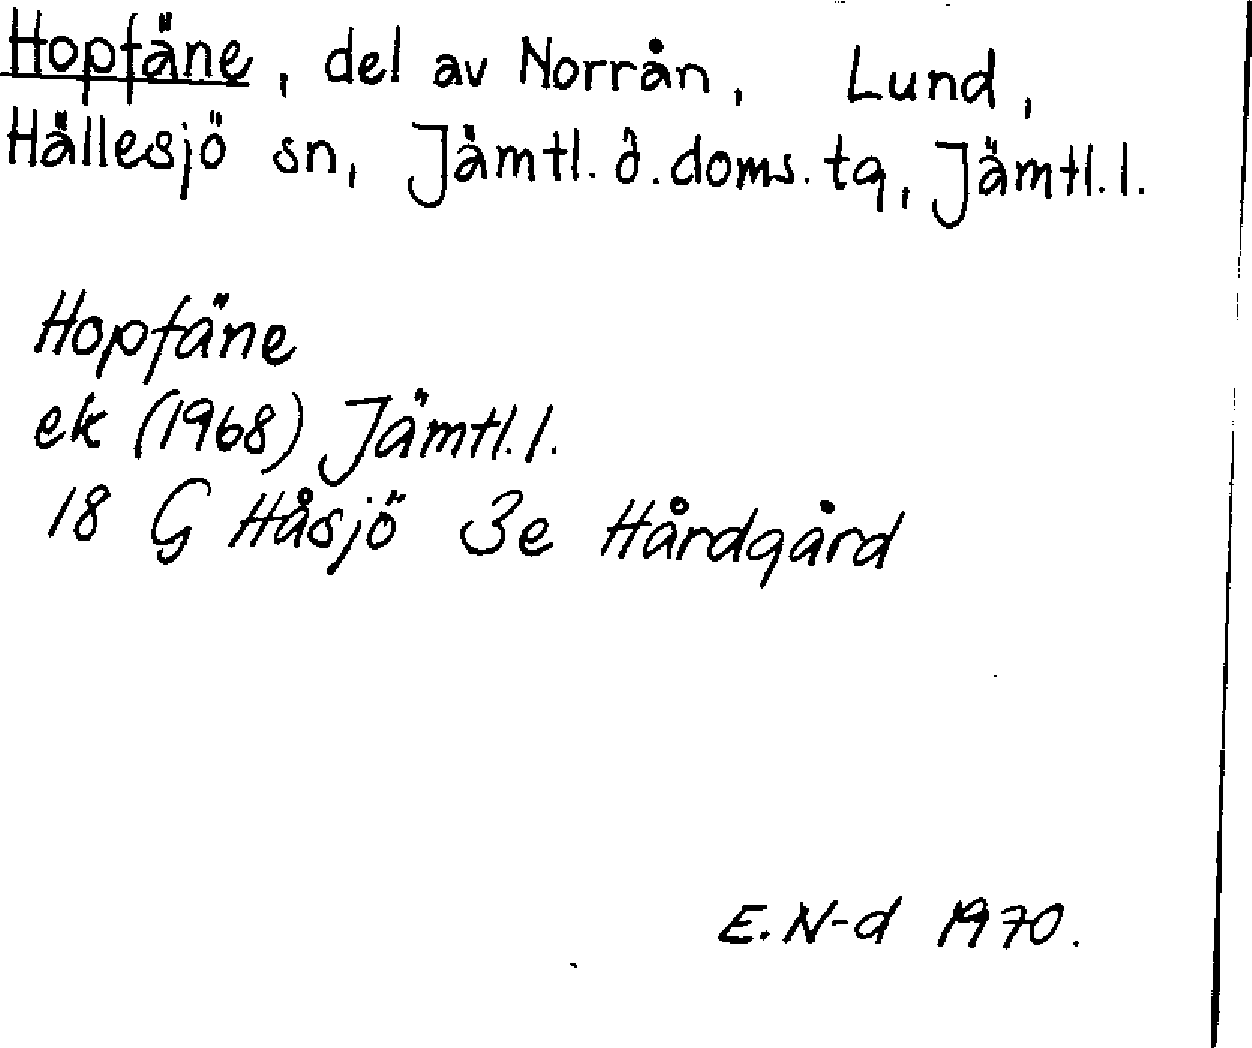 Hopfäne, del av Norrån, Lund,
Hällesjö sn, Jämtl. ö. doms. tg, Jämtl. l.
Hopfäne
ek (1968) Jämtl. l.
18 G Håsjö 3e Hårdgård
E. N-d 1970.